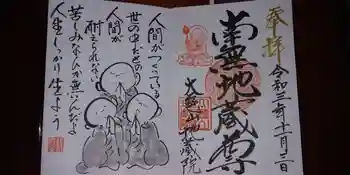 奉拝
令和三年十一月三日
南無地蔵尊
地蔵院
人間がつくっている
世の中だもの
人間が
耐えられない
苦しみなんか無いんだよ
人生しっかり生きよう